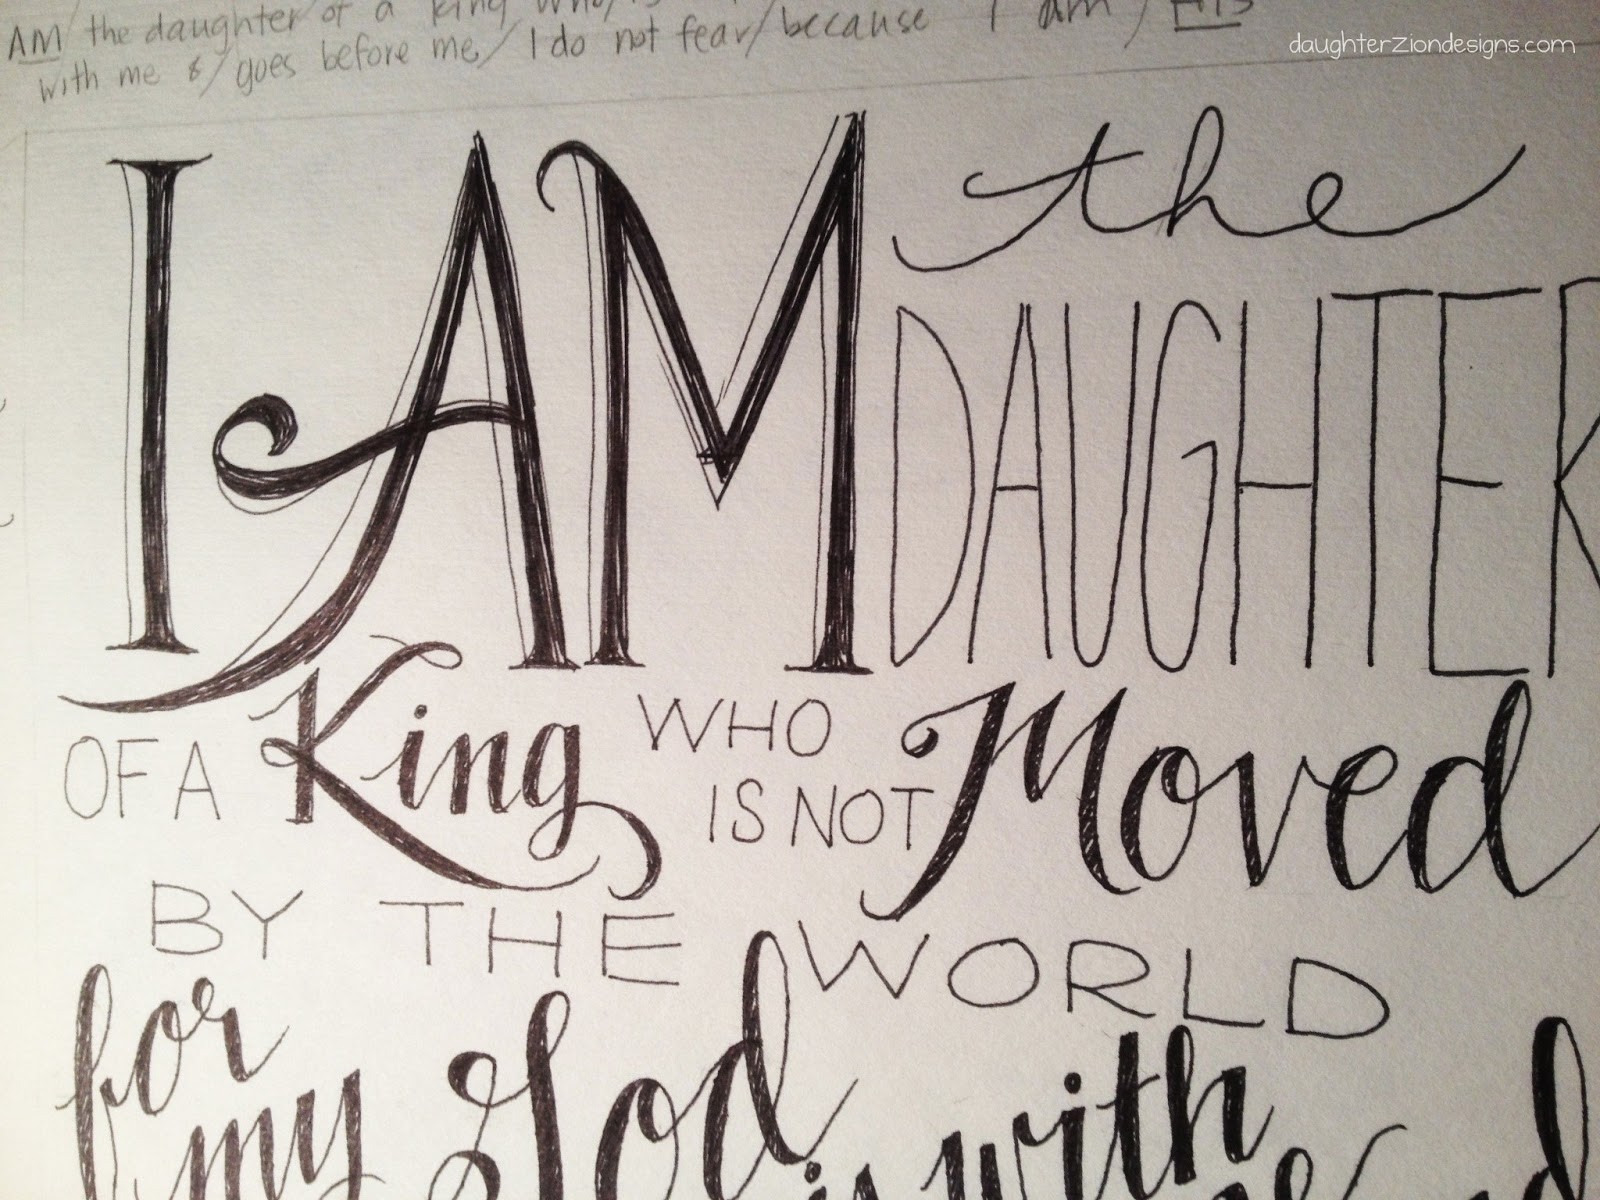 AM / the daughter of a king who / is
with me & / goes before me / I do not fear / because I am / His
daughterZiondesigns.com
I AM the
DAUGHTER
OF A King WHO
IS NOT Moved
BY THE WORLD
for
my God is with
me and